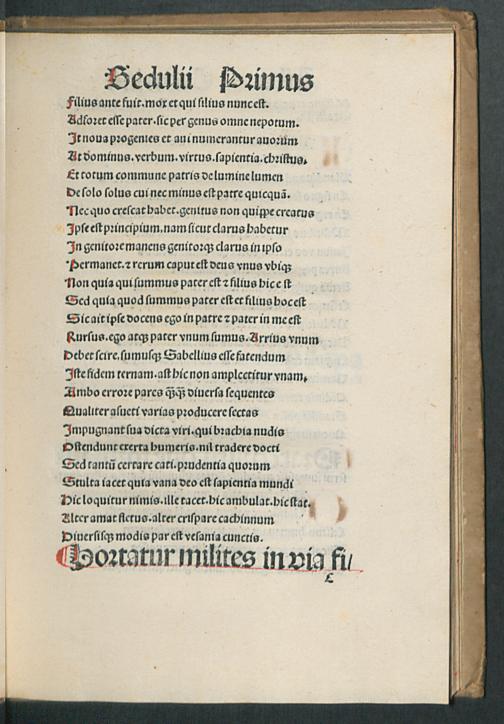 Sedulii Primus
Filius ante fuit. mox et qui filius nunc est.
Adforet esse pater. sic per genus omne nepotum.
It noua progenies et aui numerantur auorum
At dominus. verbum. virtus. sapientia. christus.
Et totum commune patris de lumine lumen
De solo solus cui nec minus est patre quicquā.
Nec quo crescat habet. genitus non quippe creatus
Ipse est principium. nam sicut clarus habetur
In genitore manens genitorqȝ clarus in ipso
Permanet. ⁊ rerum caput est deus vnus vbiqȝ
Non quia qui summus pater est ⁊ filius hic est
Sed quia quod summus pater est et filius hoc est
Sic ait ipse docens ego in patre ⁊ pater in me est
Rursus. ego atqȝ pater vnum sumus. Arrius vnum
Debet scire. sumusqȝ Sabellius esse fatendum
Iste fidem ternam. ast hic non amplectitur vnam.
Ambo errore pares qȝ̄qȝ̄ diuersa sequentes
Qualiter asueti varias producere sectas
Impugnant sua dicta viri. qui brachia nudis
Ostendunt exerta humeris. nil tradere docti
Sed tantū certare cati. prudentia quorum
Stulta iacet quia vana deo est sapientia mundi
Hic loquitur nimis. ille tacet. hic ambulat. hic stat.
Alter amat fletus. alter crispare cachinnum
Diuersisqȝ modis par est vesania cunctis.
Hortatur milites in via fi/